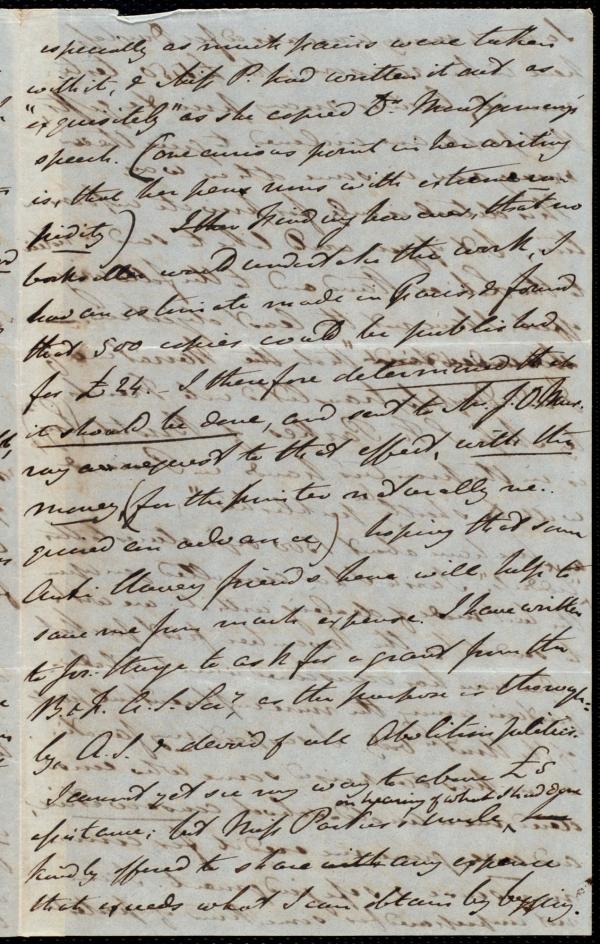 especially as much pains were taken
with it, & Miss P. had written it out as
"exquisitely" as she copied Dr. Montgomery's
speech. (One curious point in her writing
is, that her pen runs with extreme ra-
pidity) I then finding however, that no
bookseller would undertake the work, I
had an estimate made in Paris, & found
that 500 copies could be published
for £24. - I therefore determined that
it should be done, and sent to Mr. J. O. Mur-
ray a request to that effect, with the
money, (for the printer naturally re-
quired an advance) hoping that some
Anti Slavery friends here will help to
save me from much expense. I have written
to Jos. Sturge to ask for a grant from the
B. & F. A. S. Socy, as the purpose is thorough-
ly A. S. & devoid of all Abolition politics.
I cannot yet see my way to above £5
on hearing of what I had done
assistance; but Miss Parker's uncle,
kindly offered to share with any expense
that exceeds what I can obtain by begging.